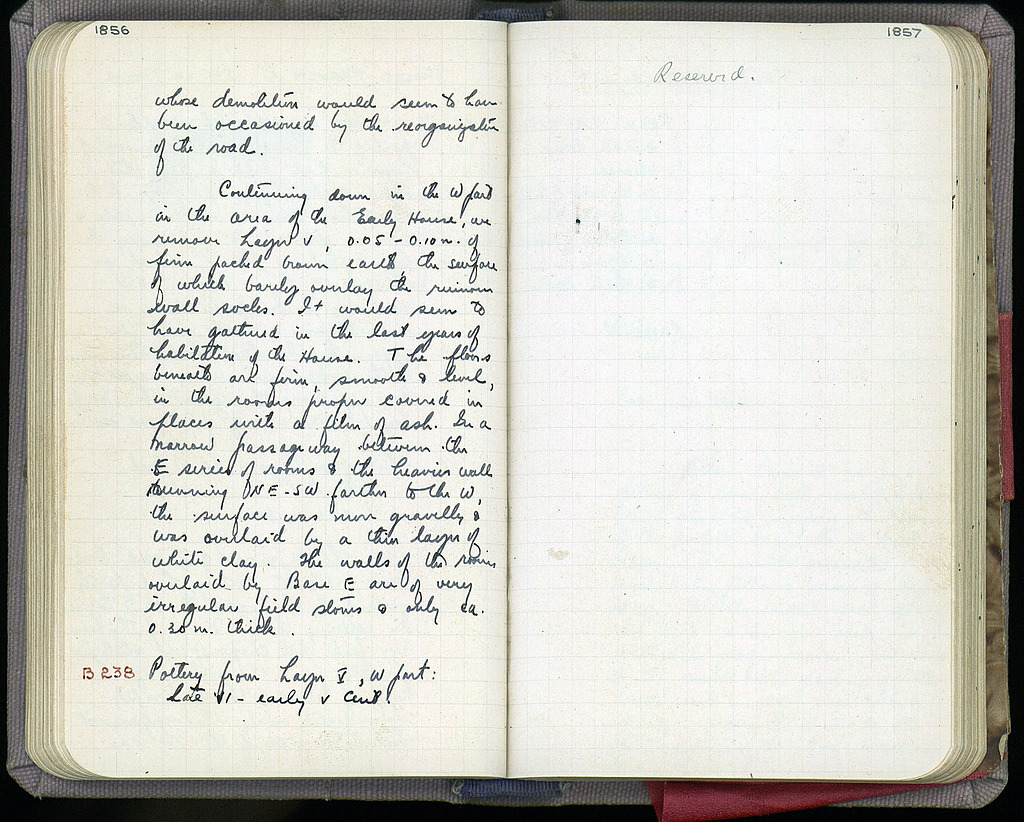 1856
whose demolition would seem to have
been occasioned by the reorganization
of the road.
Continuing down in the W part
in the area of the Early House, we
remove Layer V, 0.05 - 0.10 m. of
firm packed brown earth, the surface
of which barely overlay the ruinous
wall socles. It would seem to
have gathered in the last years of
habitation of the House. The floors
beneath are firm, smooth & level,
in the rooms proper covered in
places with a film of ash. In a
narrow passageway between the
E series of rooms & the heavier wall
running NE-SW farther to the W,
the surface was more gravelly &
was overlaid by a thin layer of
white clay. The walls of the rooms
overlaid by Base E are of very
irregular field stones & only ca.
0.30 m. thick.
B 238 Pottery from Layer V, W part:
Late VI - early V Cent.
1857
Reserved.